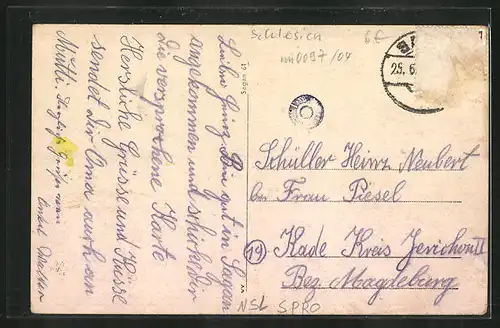 Schlesien
6€
nn0097/04
25.6.
1
Sagan 61
Lieber Heinz. Bin gut in Sagan
angekommen und schicke dir
die versprochene Karte
Herzliche Grüsse und Küsse
sendet dir Oma auch an
Mutti.
Schüller Heinz Neubert
bei Frau Piesel
19
Kade Kreis Jerichow II
Bez. Magdeburg
NSL SPRO